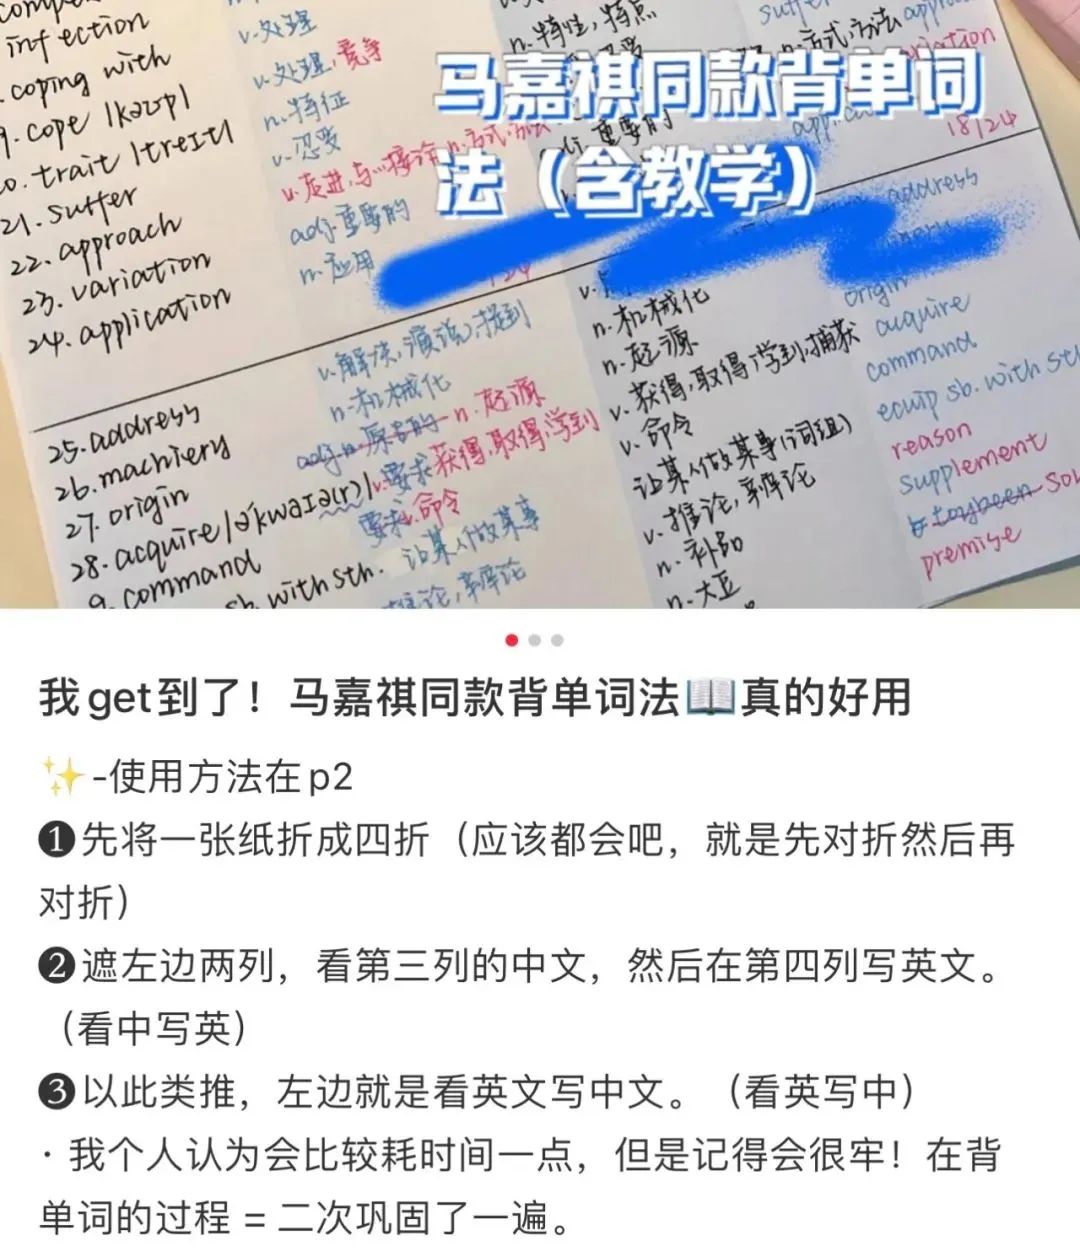 infection
coping with
cope /kəʊp/
20. trait /treɪt/
21. suffer
22. approach
23. variation
24. application
v.处理
v.处理,竞争
n.特征
v.忍受
v.走进,与…接洽 n.方式,方法
adj.重要的
n.应用
n.特性,特点
马嘉祺同款背单词
法（含教学）
18/24
address
25. address
26. machiery
27. origin
28. acquire /ə'kwaɪə(r)/
9. command
sb. with sth.
v.解决,演说,提到
n.机械化
adj.n.原告的 n.起源
v.要求 获得,取得,学到
要求 v.命令
让某人做某事
推论,辩论
n.机械化
n.起源
v.获得,取得,学到,捕获
v.命令
让某人做某事(词组)
v.推论,辩论
n.补助
n.大豆
origin
acquire
command
equip sb. with sth
reason
supplement
premise
我get到了！马嘉祺同款背单词法📖真的好用
✨-使用方法在p2
❶先将一张纸折成四折（应该都会吧，就是先对折然后再
对折）
❷遮左边两列，看第三列的中文，然后在第四列写英文。
（看中写英）
❸以此类推，左边就是看英文写中文。（看英写中）
· 我个人认为会比较耗时间一点，但是记得会很牢！在背
单词的过程 = 二次巩固了一遍。